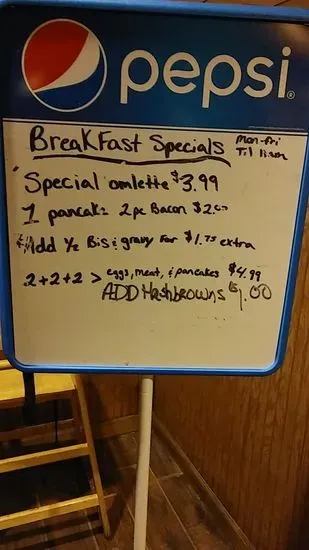 pepsi
BreakFast Specials Mon-fri
Til 11am
Special omlette $3.99
1 pancake 2pc Bacon $2.00
Add ½ Bis & gravy For $1.75 extra
2+2+2 > eggs, meat, & pancakes $4.99
ADD Hashbrowns $1.00